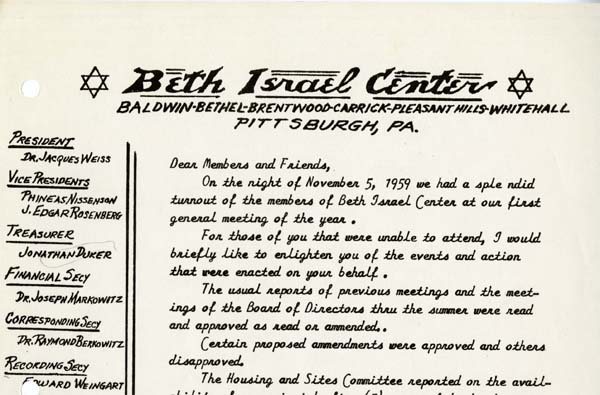 Beth Israel Center
BALDWIN-BETHEL-BRENTWOOD-CARRICK-PLEASANT HILLS-WHITEHALL
PITTSBURGH, PA.
PRESIDENT
DR. JACQUES WEISS
VICE PRESIDENTS
PHINEAS NISSENSON
J. EDGAR ROSENBERG
TREASURER
JONATHAN DUKER
FINANCIAL SECY
DR. JOSEPH MARKOWITZ
CORRESPONDING SECY
DR. RAYMOND BERKOWITZ
RECORDING SECY
EDWARD WEINGART
Dear Members and Friends,
On the night of November 5, 1959 we had a sple ndid
turnout of the members of Beth Israel Center at our first
general meeting of the year .
For those of you that were unable to attend, I would
briefly like to enlighten you of the events and action
that were enacted on your behalf .
The usual reports of previous meetings and the meet-
ings of the Board of Directors thru the summer were read
and approved as read or ammended..
Certain proposed ammendments were approved and others
disapproved.
The Housing and Sites Committee reported on the avail-